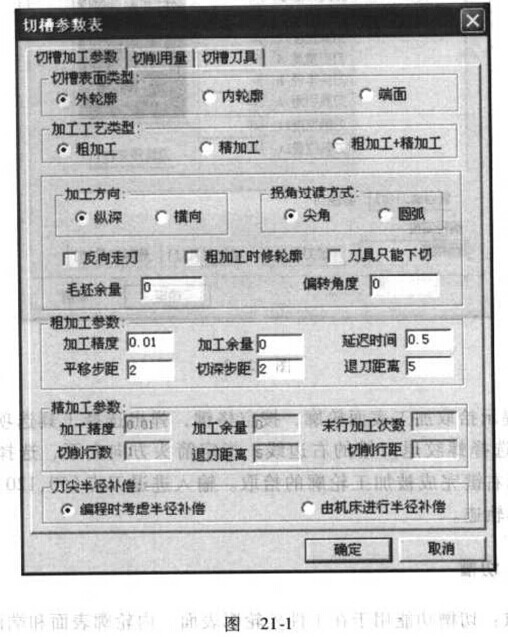 切槽参数表
切槽加工参数 切削用量 切槽刀具
切槽表面类型:
外轮廓 内轮廓 端面
加工工艺类型:
粗加工 精加工 粗加工+精加工
加工方向: 拐角过渡方式:
纵深 横向 尖角 圆弧
反向走刀 粗加工时修轮廓 刀具只能下切
毛坯余量 0 偏转角度 0
粗加工参数:
加工精度 0.01 加工余量 0 延迟时间 0.5
平移步距 2 切深步距 2 退刀距离 5
精加工参数:
加工精度 加工余量 末行加工次数
切削行数 退刀距离 切削行距
刀尖半径补偿
编程时考虑半径补偿 由机床进行半径补偿
确定 取消
图 21-1